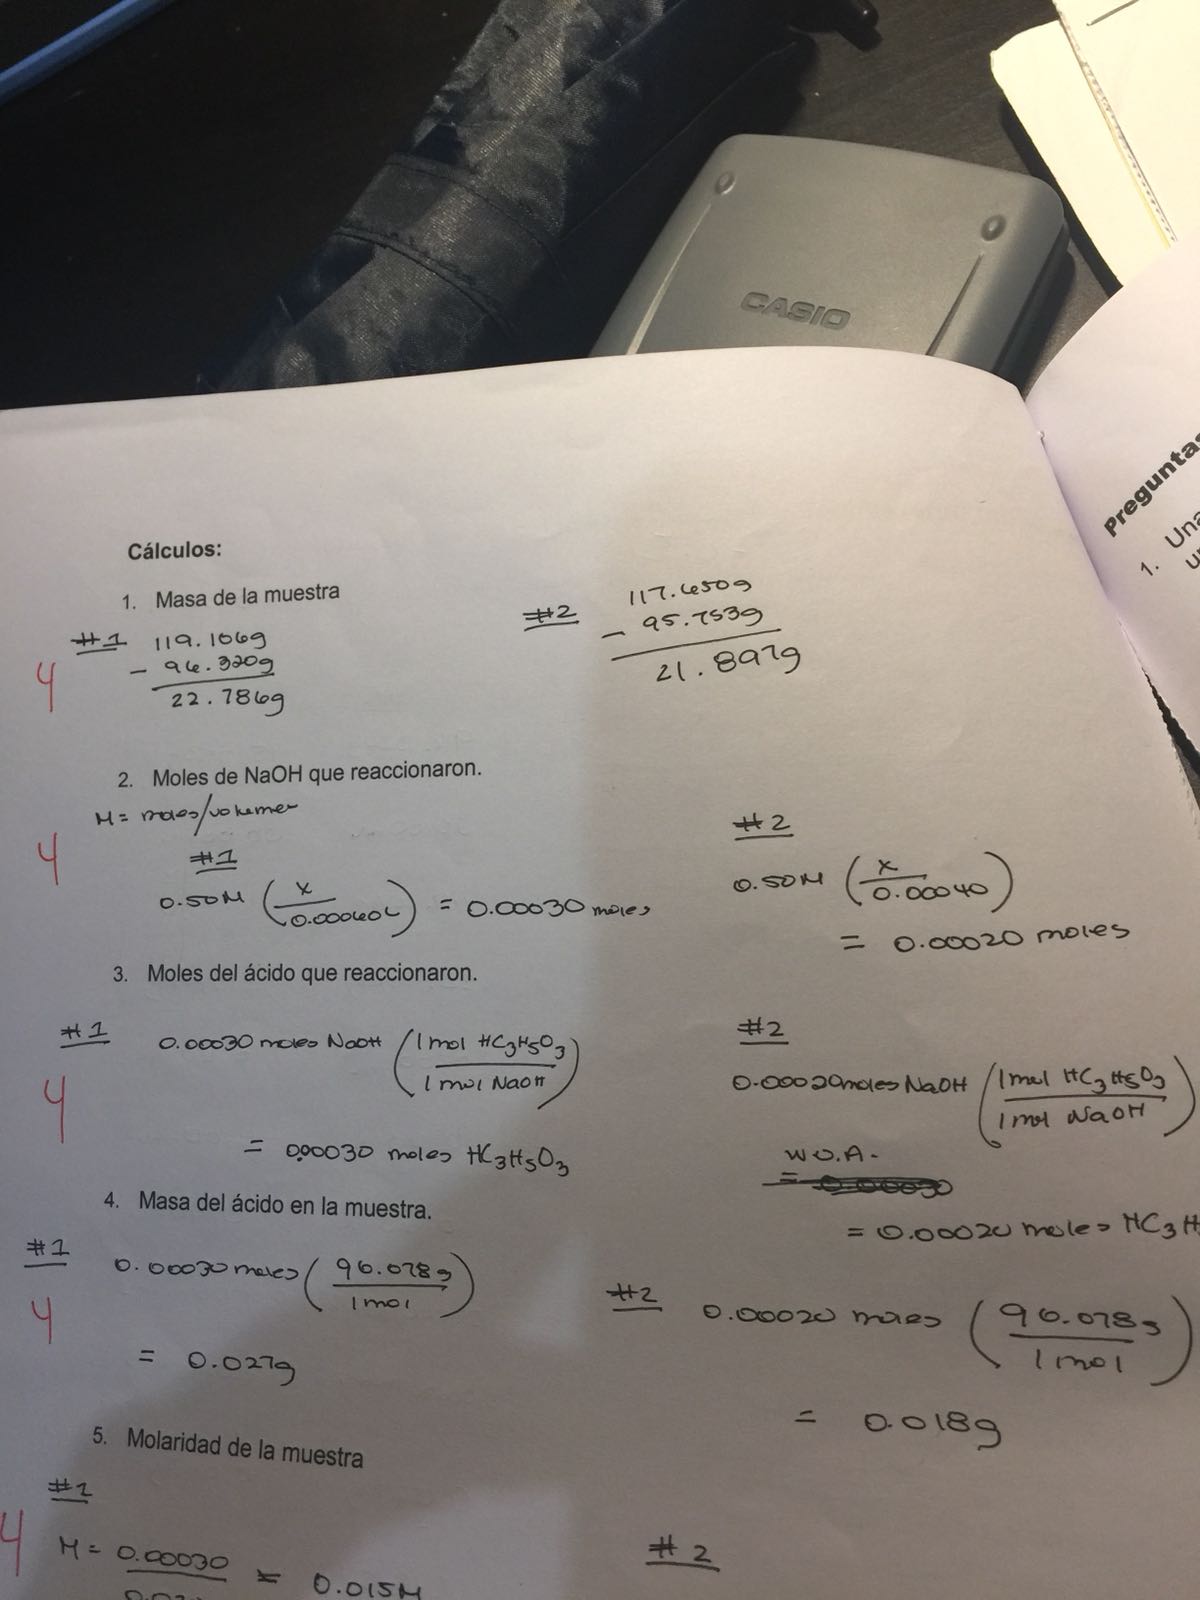 CASIO
Preguntas
1. Una
Cálculos:
1. Masa de la muestra
#1 119.106g
- 96.320g
22.786g
#2 117.650g
- 95.753g
21.897g
4
2. Moles de NaOH que reaccionaron.
M = moles/volumen
4
#1
0.50M (x / 0.00060L) = 0.00030 moles
#2
0.50M (x / 0.00040)
= 0.00020 moles
3. Moles del ácido que reaccionaron.
#1 0.00030 moles NaOH (1mol HC3H5O3 / 1mol NaOH)
4
= 0.00030 moles HC3H5O3
#2
0.00020 moles NaOH (1mol HC3H5O3 / 1mol NaOH)
W.O.A.
= 0.00030
= 0.00020 moles HC3H
4. Masa del ácido en la muestra.
#1 0.00030 moles (90.078g / 1mol)
4
= 0.027g
#2 0.00020 moles (90.078g / 1mol)
= 0.018g
5. Molaridad de la muestra
#1
4
M = 0.00030 = 0.015M
#2